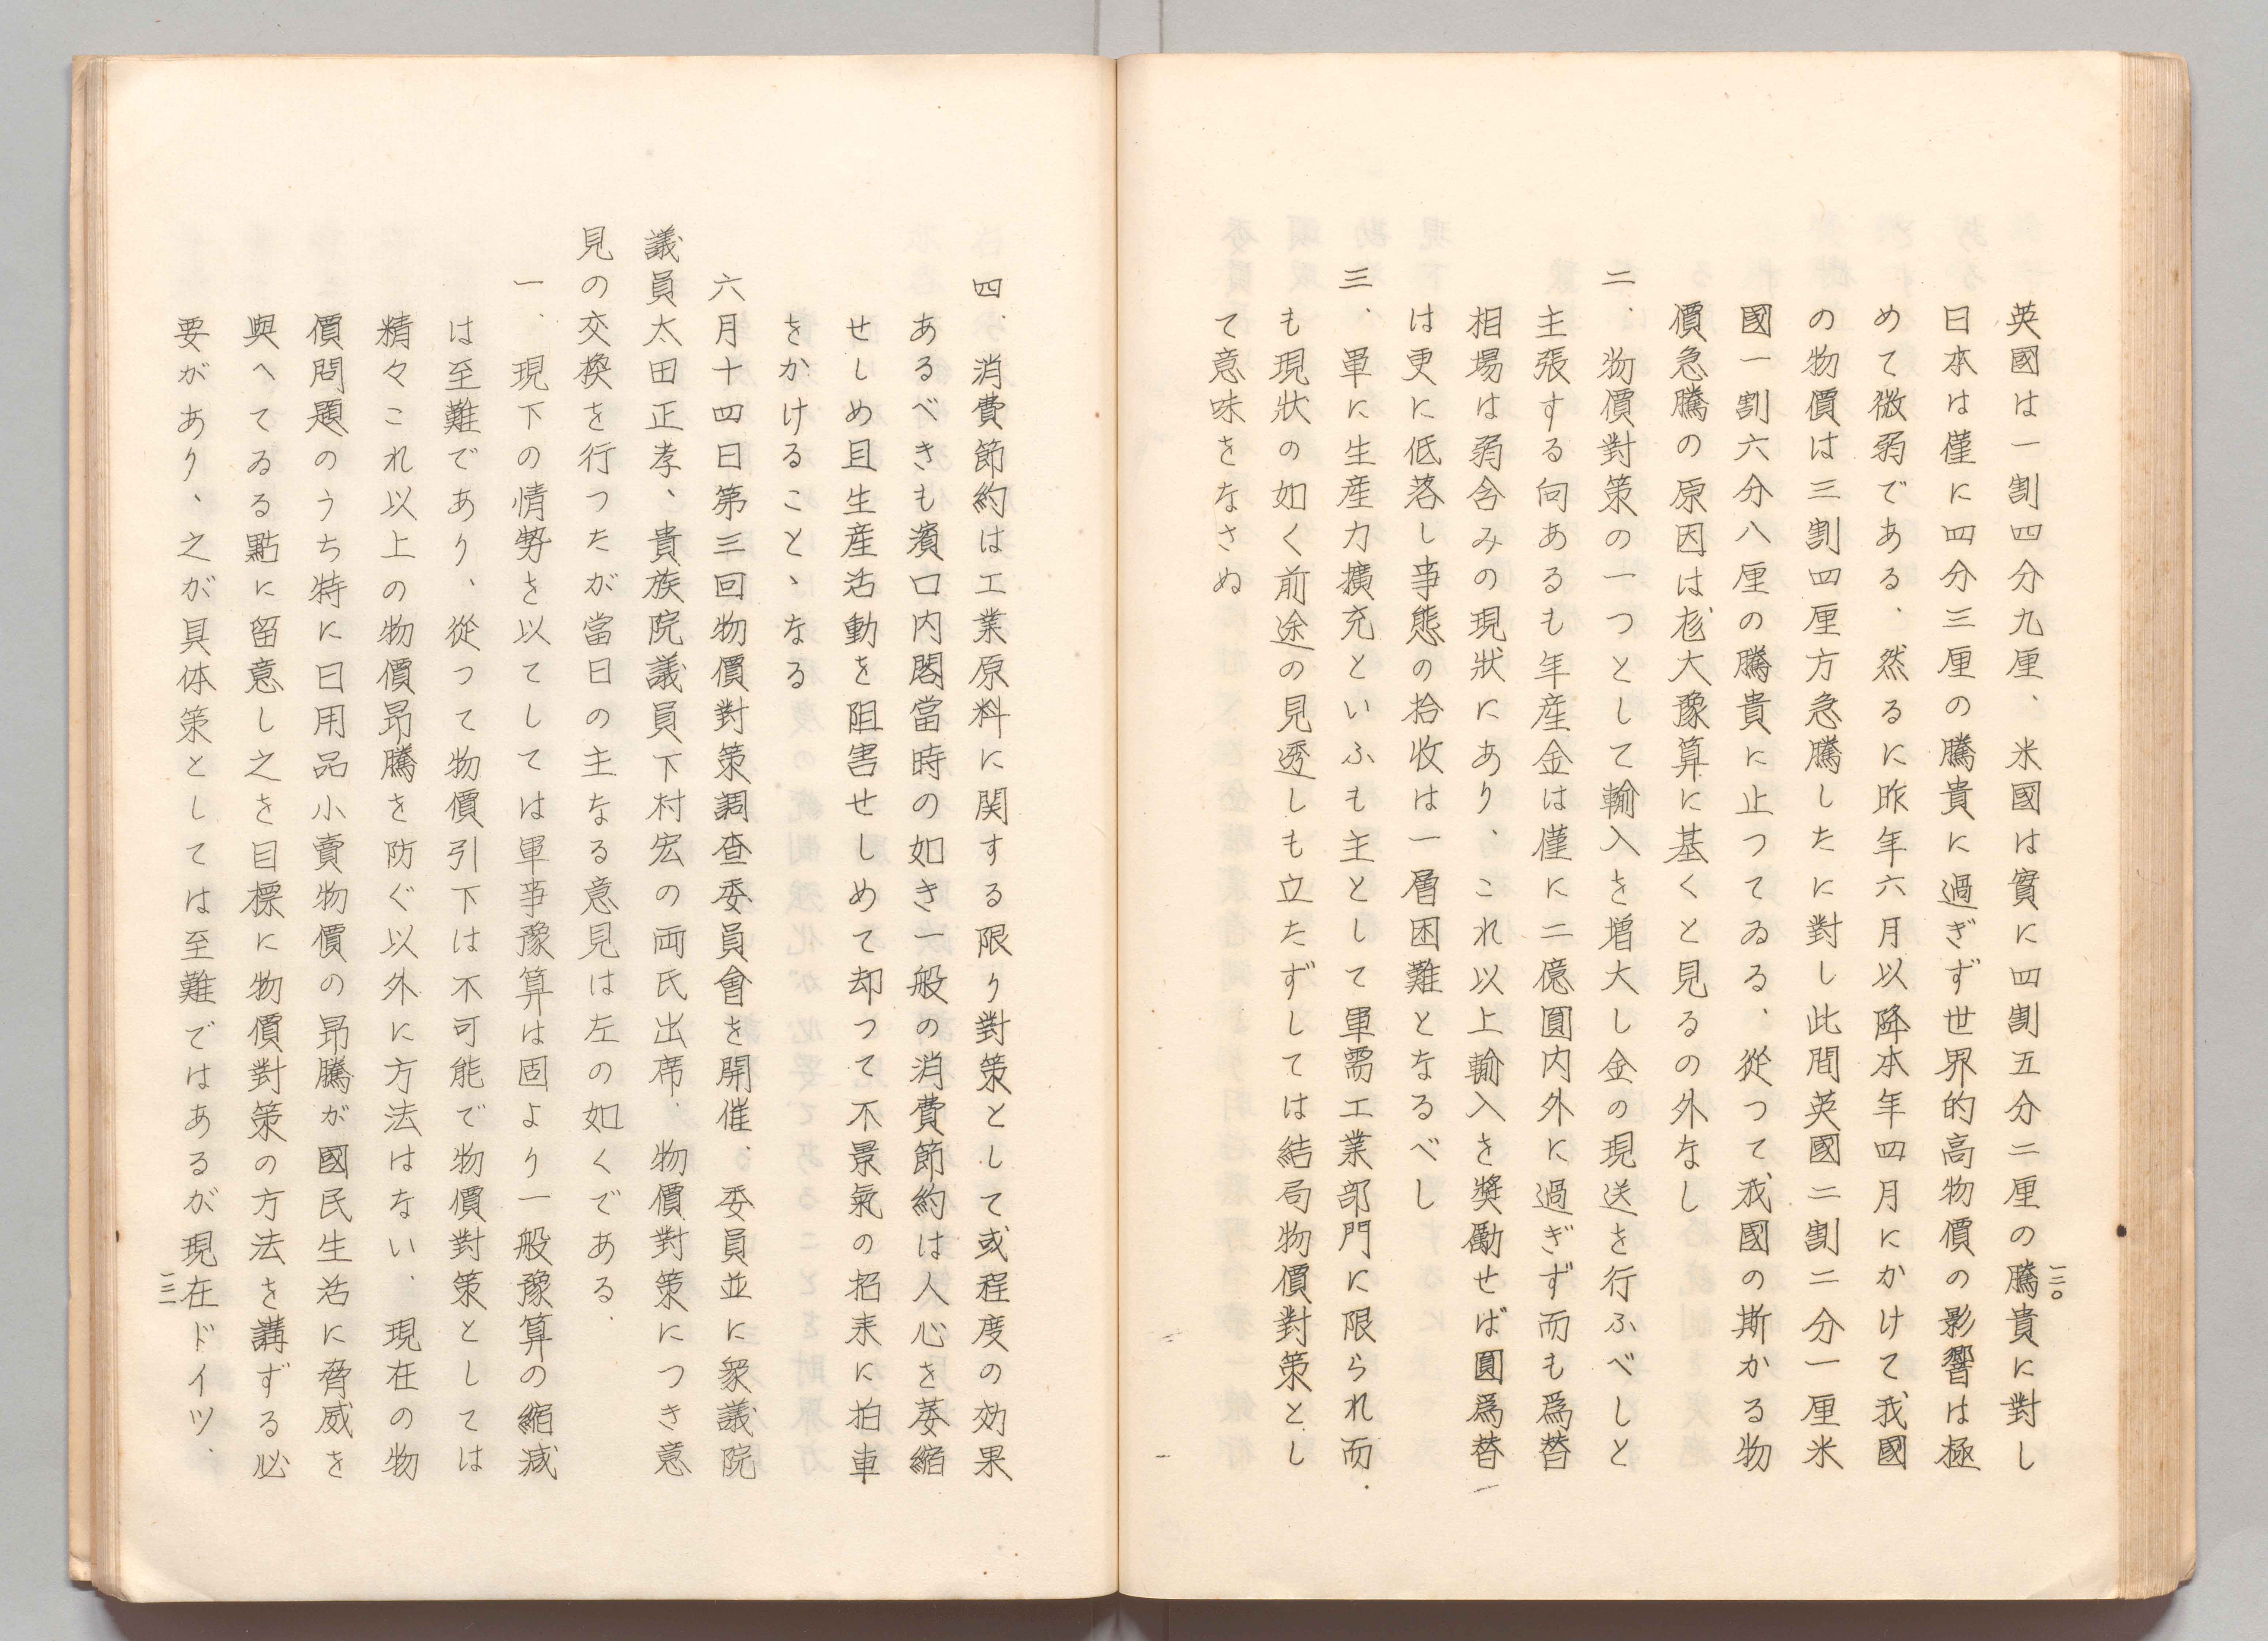 一三〇
英國は一割四分九厘、米國は實に四割五分二厘の騰貴に對し
日本は僅に四分三厘の騰貴に過ぎず世界的高物價の影響は極
めて微弱である、然るに昨年六月以降本年四月にかけて我國
の物價は三割四厘方急騰したに對し此間英國二割二分一厘米
國一割六分八厘の騰貴に止つてゐる、從つて我國の斯かる物
價急騰の原因は尨大豫算に基くと見るの外なし
二、物價對策の一つとして輸入を増大し金の現送を行ふべしと
主張する向あるも年産金は僅に二億圓内外に過ぎず而も爲替
相場は弱含みの現狀にあり、これ以上輸入を奬勵せば圓爲替
は更に低落し事態の拾收は一層困難となるべし
三、單に生産力擴充といふも主として軍需工業部門に限られ而
も現狀の如く前途の見透しも立たずしては結局物價對策とし
て意味をなさぬ
四、消費節約は工業原料に関する限り對策として或程度の効果
あるべきも濱口内閣當時の如き一般の消費節約は人心を萎縮
せしめ且生産活動を阻害せしめて却つて不景氣の招来に拍車
をかけることゝなる
六月十四日第三回物價對策調査委員會を開催、委員並に衆議院
議員太田正孝、貴族院議員下村宏の両氏出席、物價對策につき意
見の交換を行つたが當日の主なる意見は左の如くである、
一、現下の情勢を以てしては軍事豫算は固より一般豫算の縮减
は至難であり、從つて物價引下は不可能で物價對策としては
精々これ以上の物價昻騰を防ぐ以外に方法はない、現在の物
價問題のうち特に日用品小賣物價の昻騰が國民生活に脅威を
與へてゐる點に留意し之を目標に物價對策の方法を講ずる必
要があり、之が具体策としては至難ではあるが現在ドイツ、
一三一